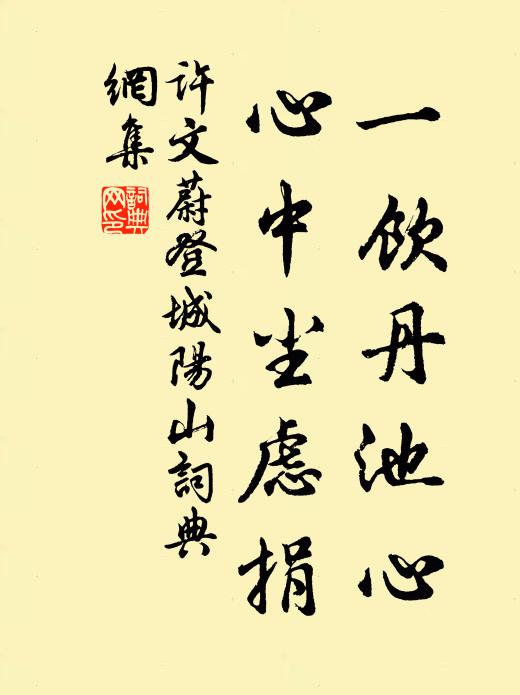 一飲丹池心
心中尘慮捐
許文蔚登城陽山詞典
網集
詞典
网印